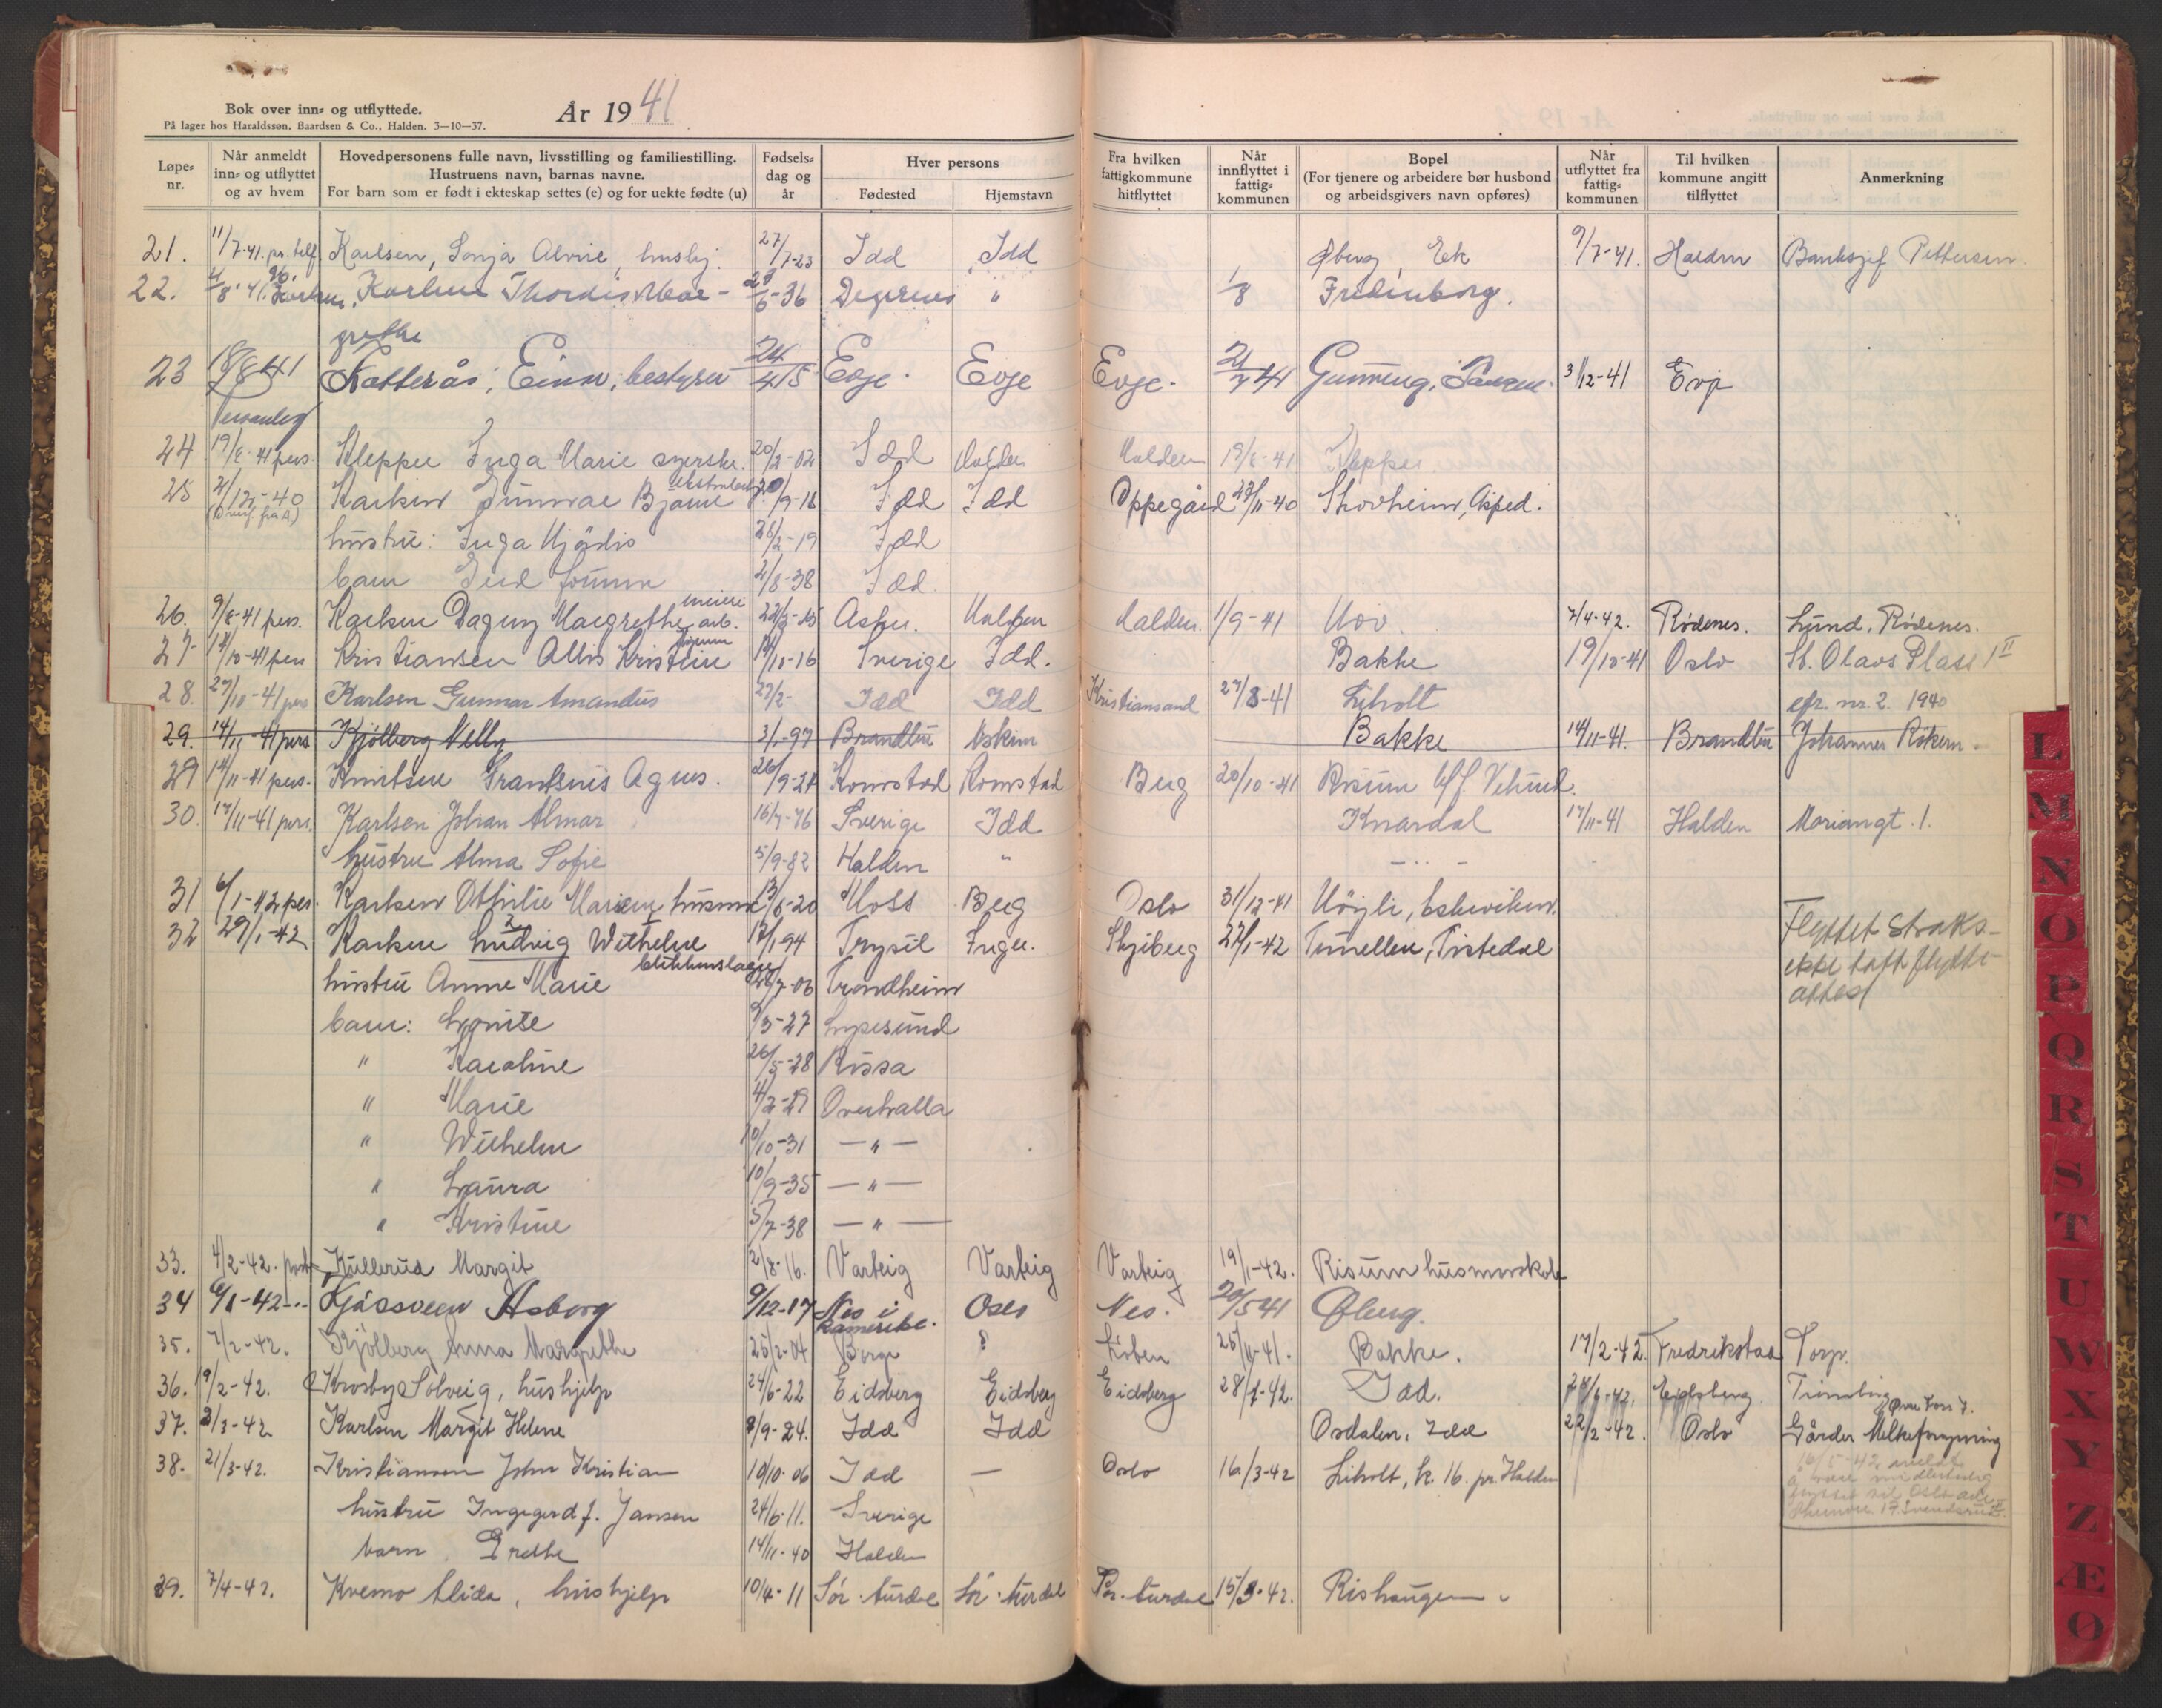 Bok over inn- og utflyttede.
På lager hos Haraldssøn, Baardsen & Co., Halden. 3—10—37.
År 1941
Løpe-nr.
Når anmeldt inn- og utflyttet og av hvem
Hovedpersonens fulle navn, livsstilling og familiestilling.
Hustruens navn, barnas navne.
For barn som er født i ekteskap settes (e) og for uekte fødte (u)
Fødsels-dag og år
Hver persons
Fødested
Hjemstavn
Fra hvilken fattigkommune hitflyttet
Når innflyttet i fattig-kommunen
Bopel
(For tjenere og arbeidere bør husbond og arbeidsgivers navn opføres)
Når utflyttet fra fattig-kommunen
Til hvilken kommune angitt tilflyttet
Anmerkning
21. 11/7-41. pr. telf. Karlsen, Sonja Alvire, hushj. 27/7-23 Idd Idd Øberg, Ek 9/7-41. Halden Banksjef Pettersen.
22. Thordis Mar- 29/6-36 Degernes " 1/8 Fredenborg.
grethe
23 18/8 41 Katterås, Einar, bestyrer 24/4 15 Evje Evje Evje 3/12-41 Evje
24 19/8-41 pers. Kleppe Inga Marie 20/2-02 Idd Halden Halden 19/8-41 Kleppe.
25 2/12-40 Karlsen Gunnar Bjarne 20/9-16 Idd Idd Oppegård 23/11-40 Skovheim, Asped.
hustru: Inga Hjördis 28/2-19 Idd
barn 2/8-38 Idd.
26. 9/8-41 pers. Karlsen Dagny Margrethe, meieri arb. 22/3-15 Asker. Halden Halden. 1/9-41 Hov. 7/4-42. Rødenes. Lund, Rødenes.
27. 17/10-41 pers Kristiansen Allis Kristine 17/11-16 Sverige Idd. Bakke 19/10-41 Oslo St. Olavs Plass 1 II
28. 27/10-41 pers Karlsen Gunnar Amandus 27/2- Idd Idd Kristiansand 27/8-41 Liholt cfr. nr. 2. 1940
29. 14/11-41 pers Kjølberg Nelly 3/1-97 Brandbu Askim Bakke 14/11-41. Brandbu Johannes Røken.
29 14/11-41 pers. Knutsen Agnes. 26/9-21 Romstad Romstad Berg 20/10-41 Risum
30. 17/11-41 pers. Karlsen Johan Almar 16/7-76 Sverige Idd Knardal 17/11-41 Halden Mariangt. 1.
hustru Alma Sofie 5/9-82 Halden " - " -
31 6/1-42 pers. Karlsen Othilie Mariem, husmor 13/6-20 Moss Berg Oslo 31/12-41
32 29/1-42 Karlsen Ludvig Wilhelm 17/1-94 Trysil Ingen. Skjeberg 27/1-42 Tunellen, Tistedal Flyttet straks-
blikkenslager ikke tatt flytte-
hustru Anne Marie 28/7-06 Trondheim attest
barn: Lovise 9/3-27 Lysesund
" Karoline 26/5-28 Rissa
" Marie 4/2-29 Overhalla
" Wilhelm 10/10-31 — " —
" Laura 10/9-35 — " —
" Kristine 5/7-38 — " —
33. 4/2-42. post Kullerud Margit 2/8-16. Varteig Varteig Varteig 19/1-42. Risum husmorskole
34 6/1-42 -"- Kjåsveen Asborg 9/12-17 Nes i Romerike. Oslo Nes. 20/5 41 Øberg.
35. 7/2-42. Kjølberg Anna Margrethe 25/2-04 Borge ? 25/11-41. Bakke. 17/2-42. Fredrikstad Torp.
36. 19/2-42. Krosby Solveig, hushjelp 24/6-22 Eidsberg Eidsberg Eidsberg 28/1-42. Idd. Eidsberg
37. 3/3-42 Karlsen Margit Helene 8/9-24. Idd Idd Osdalen, Idd 22/2-42. Oslo Gårder Melkeforsyning
38. 21/3-42. Kristiansen John Kristian 10/10-06 Idd — Oslo 16/3-42 Liholt, k. 16. pr. Halden
16/5-42 meldt å være midlertidig flyttet til Oslo
hustru Ingegerd f. Jansen 24/6-11. Sverige
barn Grethe 14/11-40 Halden
39. 7/4-42. Kvemo Alida, hushjelp 10/4-11 Sör-Aurdal Sör-Aurdal Sör-Aurdal 15/3-42. Rishaugen
L
M
N
O
P
Q
R
S
T
U
W
X
Y
Z
Æ
Ø